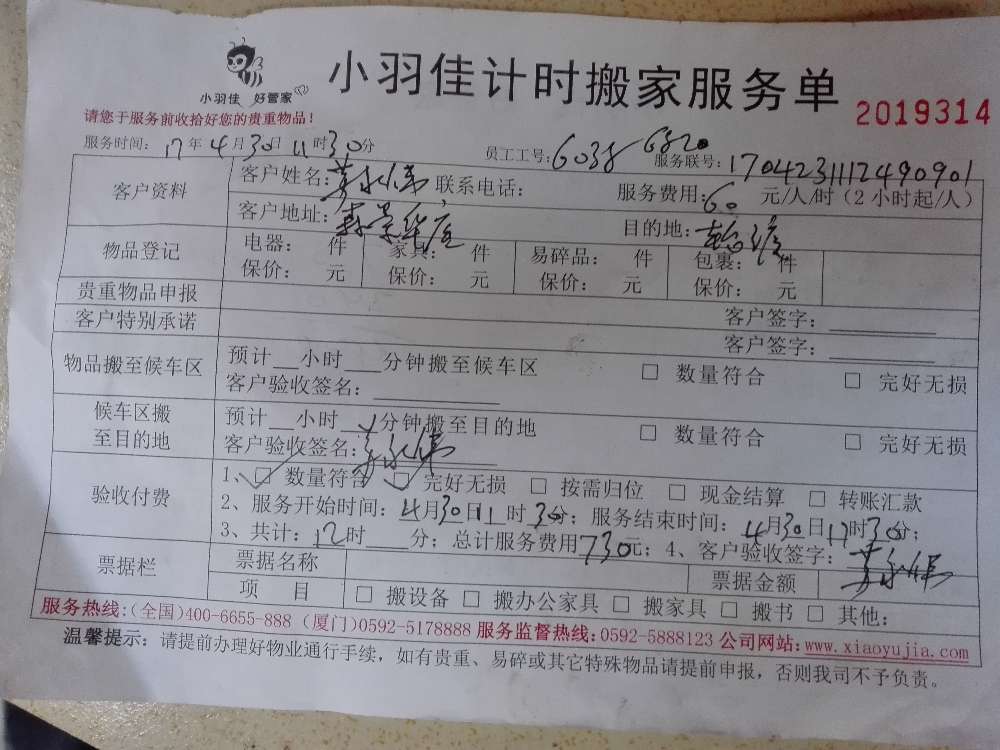 小羽佳计时搬家服务单
小羽佳 好管家
2019314
请您于服务前收拾好您的贵重物品!
服务时间: 17年4月30日11时30分 员工工号: 6038 6820 服务联号: 1704231112490901
客户资料 客户姓名: 联系电话: 服务费用: 60 元/人/时(2小时起/人)
客户地址: 目的地:
物品登记 电器: 件 家具: 件 易碎品: 件 包裹: 件
保价: 元 保价: 元 保价: 元 保价: 元
贵重物品申报 客户签字:
客户特别承诺 客户签字:
物品搬至候车区 预计__小时___分钟搬至候车区 □ 数量符合 □ 完好无损
客户验收签名:
候车区搬至目的地 预计__小时___分钟搬至目的地 □ 数量符合 □ 完好无损
客户验收签名:
验收付费 1、☑ 数量符合 ☑ 完好无损 □ 按需归位 □ 现金结算 □ 转账汇款
2、服务开始时间: 4月30日11时30分; 服务结束时间: 4月30日17时30分;
3、共计: 12时___分; 总计服务费用730元; 4、客户验收签字:
票据栏 票据名称 票据金额
项 目 □ 搬设备 □ 搬办公家具 □ 搬家具 □ 搬书 □ 其他:
服务热线:(全国)400-6655-888 (厦门)0592-5178888 服务监督热线:0592-5888123 公司网站:www.xiaoyujia.com
温馨提示: 请提前办理好物业通行手续,如有贵重、易碎或其它特殊物品请提前申报,否则我司不予负责。